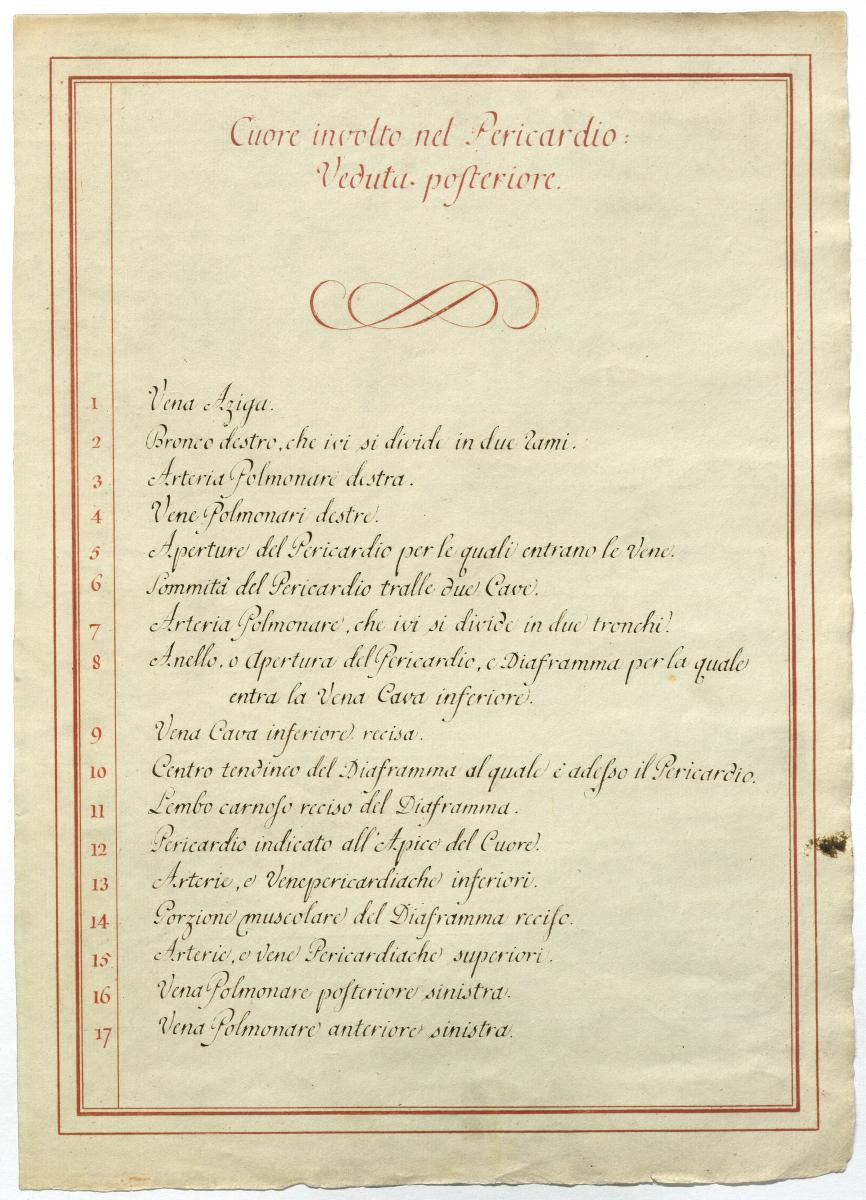 Cuore involto nel Pericardio:
Veduta posteriore.
1 Vena Aziga.
2 Bronco destro, che ivi si divide in due Rami.
3 Arteria Polmonare destra.
4 Vene Polmonari destre.
5 Aperture del Pericardio per le quali entrano le Vene.
6 Sommità del Pericardio tralle due Cave.
7 Arteria Polmonare, che ivi si divide in due tronchi.
8 Anello, o Apertura del Pericardio, e Diaframma per la quale
entra la Vena Cava inferiore.
9 Vena Cava inferiore recisa.
10 Centro tendineo del Diaframma al quale è adesso il Pericardio.
11 Lembo carnoso reciso del Diaframma.
12 Pericardio indicato all'Apice del Cuore.
13 Arterie, e Vene pericardiache inferiori.
14 Porzione muscolare del Diaframma reciso.
15 Arterie, e vene Pericardiache superiori.
16 Vena Polmonare posteriore sinistra.
17 Vena Polmonare anteriore sinistra.